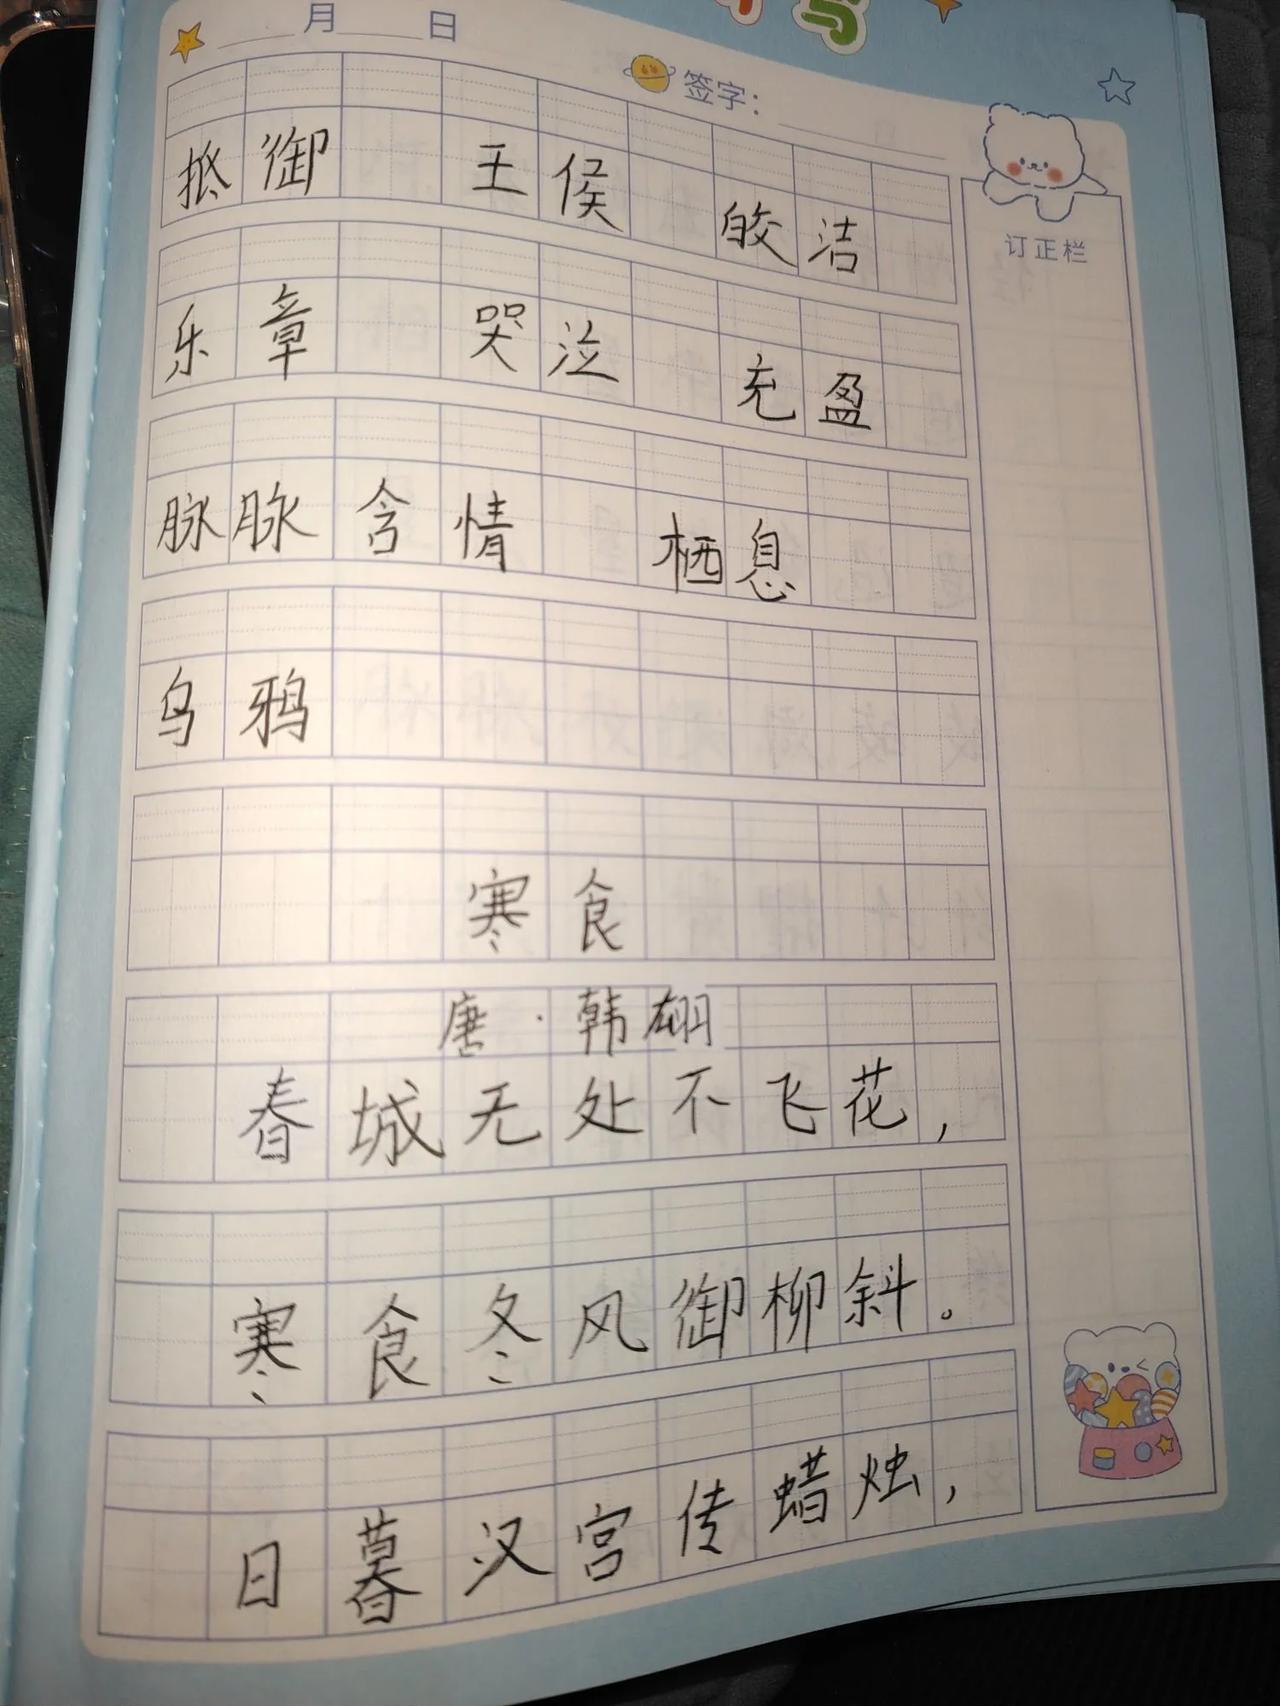 月 日
签字：
抵御 王侯 皎洁
订正栏
乐章 哭泣 充盈
脉脉含情 栖息
乌鸦
寒食
唐·韩翃
春城无处不飞花，
寒食冬风御柳斜。
日暮汉宫传蜡烛，